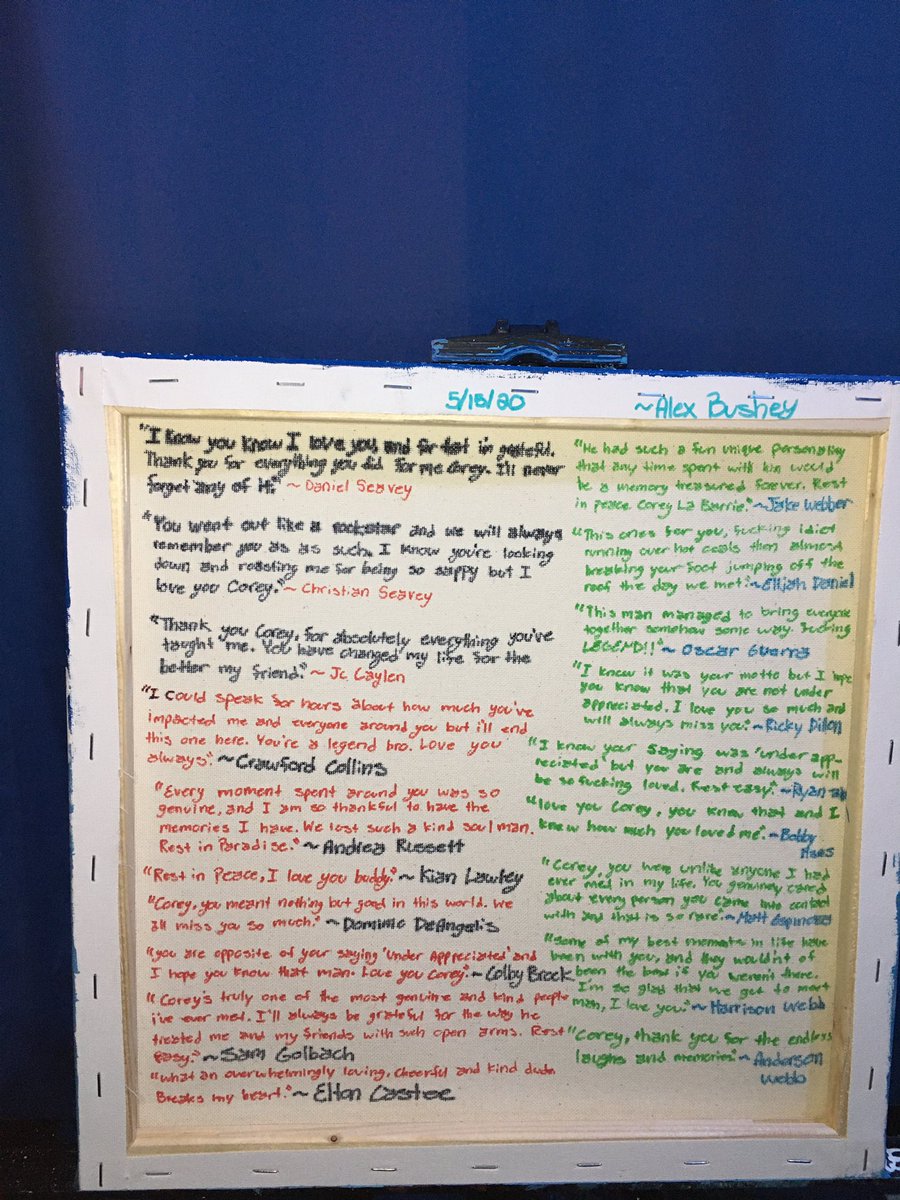 5/18/20
~Alex Bushey
"I know you know I love you, and for that i'm grateful.
Thank you for everything you did for me Corey. I'll never
forget any of it." ~ Daniel Seavey
"You went out like a rockstar and we will always
remember you as as such. I know you're looking
down and roasting me for being so sappy but I
love you Corey."~ Christian Seavey
"Thank you Corey, for absolutely everything you've
taught me. You have changed my life for the
better my friend." ~ Jc Caylen
"I could speak for hours about how much you've
impacted me and everyone around you but i'll end
this one here. You're a legend bro. Love you
always". ~Crawford Collins
"Every moment spent around you was so
genuine, and I am so thankful to have the
memories I have. We lost such a kind soul man.
Rest in Paradise." ~ Andrea Russett
"Rest in Peace, I love you buddy." ~ Kian Lawley
"Corey, you meant nothing but good in this world. We
all miss you so much." ~Dominic DeAngelis
"you are opposite of your saying 'Under Appreciated' and
I hope you know that man. Love you Corey." ~Colby Brock
"Corey's truly one of the most genuine and kind people
i've ever met. I'll always be grateful for the way he
treated me and my friends with such open arms. Rest
Easy." ~Sam Golbach
"what an overwhelmingly loving, cheerful and kind dude.
Breaks my heart." ~ Elton Castee
"He had such a fun unique personality
that any time spent with him would
be a memory treasured forever. Rest
in peace Corey La Barrie." ~Jake Webber
"This ones for you, fucking idiot
running over hot coals then almost
breaking your foot jumping off the
roof the day we met." ~Elijah Daniel
"This man managed to bring everyone
together somehow some way. Fucking
LEGEND!!" ~ Oscar Guerra
"I knew it was your motto but I hope
you know that you are not under
appreciated. I love you so much and
will always miss you." ~Ricky Dillon
"I know your saying was 'under app-
reciated' but you are and always will
be so fucking loved. Rest easy." ~Ryan
"love you Corey, you know that and I
knew how much you loved me". ~Bobby
Mares
"Corey, you were unlike anyone I had
ever met in my life. You genuinely cared
about every person you came into contact
with and that is so rare." ~Matt Espinosa
"Some of my best moments in life have
been with you, and they wouldn't of
been the best if you weren't there.
I'm so glad that we got to meet
man, I love you." ~ Harrison Webb
"Corey, thank you for the endless
laughs and memories." ~ Anderson
Webb